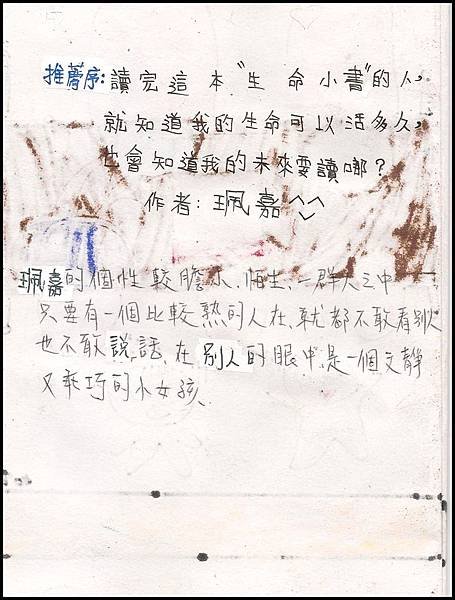 推薦序:讀完這本"生命小書"的人,
就知道我的生命可以活多久,
也會知道我的未來要讀哪?
作者:珮嘉^^
珮嘉的個性較膽小、陌生、一群人之中
只要有一個比較熟的人在、就都不敢看別人
也不敢說話、在別人的眼中、是一個文靜
又乖巧的小女孩、